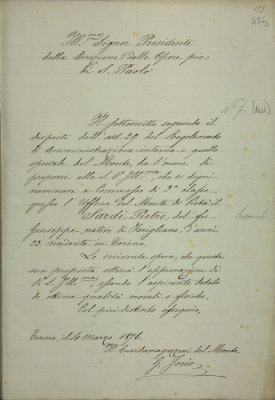 475
Ill.mo Signor Presidente
della Direzione delle Opere pie
di S. Paolo
N. 7.
Il sottoscritto seguendo il
disposto dell'art. 29 del Regolamento
di Amministrazione interna e quello
speciale del Monte, ha l'onore di
proporre alla S. V. Ill.ma, che si degni
nominare a Commesso di 3a classe
presso l'Ufficio del Monte di Pietà il
Sardi Pietro, del fu
Giuseppe, nativo di Savigliano, d'anni
33, residente in Torino.
Lo scrivente spera, che questa
sua proposta otterrà l'approvazione di
V. S. Ill.ma, essendo l'aspirante dotato
di ottime qualità morali e fisiche.
Col più distinto ossequio,
Torino, il 4 marzo 1876.
Il Guardamagazzeni del Monte
G. Torio